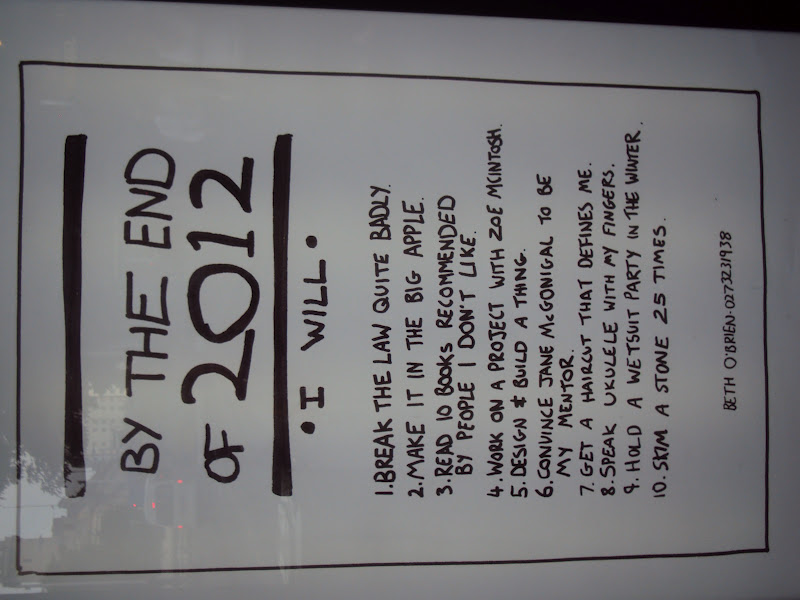 BY THE END
OF 2012
• I WILL •
1. BREAK THE LAW QUITE BADLY.
2. MAKE IT IN THE BIG APPLE.
3. READ 10 BOOKS RECOMMENDED
BY PEOPLE I DON'T LIKE.
4. WORK ON A PROJECT WITH ZOE MCINTOSH.
5. DESIGN & BUILD A THING.
6. CONVINCE JANE McGONIGAL TO BE
MY MENTOR.
7. GET A HAIRCUT THAT DEFINES ME.
8. SPEAK UKULELE WITH MY FINGERS.
9. HOLD A WETSUIT PARTY IN THE WINTER.
10. SKIM A STONE 25 TIMES.
BETH O'BRIEN·0273231938